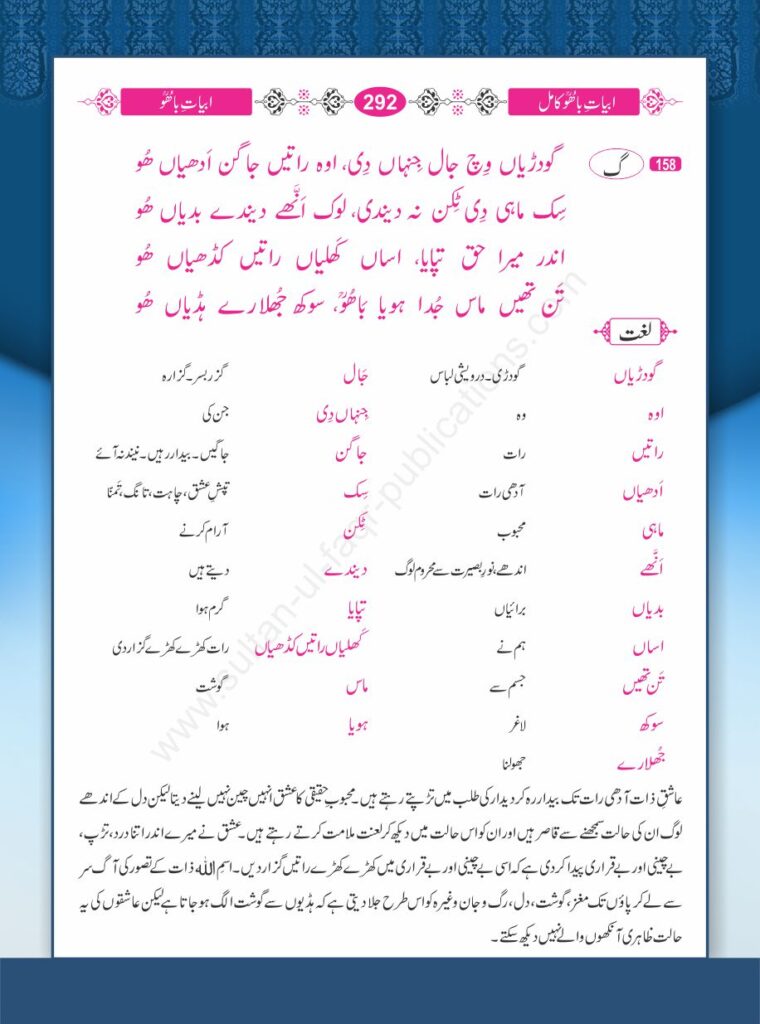 ابیاتِ باھُوؒ کامل 292 ابیاتِ باھُوؒ
158 گ گودڑیاں وِچ جال جِنہاں دِی، اوہ راتیں جاگن اَدھیاں ھُو
سِک ماہی دِی ٹِکن نہ دیندی، لوک اَنّھے دیندے بدیاں ھُو
اندر میرا حق تپایا، اساں کَھلیاں راتیں کڈھیاں ھُو
تَن تھیں ماس جُدا ہویا باَھُوؒ، سوکھ جُھلارے ہڈیاں ھُو
لغت
گودڑیاں گودڑی۔ درویشی لباس جَال گزر بسر۔ گزارہ
اوہ وہ جِنہاں دِی جن کی
راتیں رات جاگن جاگیں۔ بیدار رہیں۔ نیند نہ آئے
اَدھیاں آدھی رات سِک تپشِ عشق، چاہت، تانگ، تَمنّا
ماہی محبوب ٹِکن آرام کرنے
اَنّھے اندھے، نورِ بصیرت سے محروم لوگ دیندے دیتے ہیں
بدیاں برائیاں تپایا گرم ہوا
اساں ہم نے کَھلیاں راتیں کڈھیاں رات کھڑے کھڑے گزار دی
تَن تھیں جسم سے ماس گوشت
سوکھ لاغر ہویا ہوا
جُھلارے جھولنا
عاشقِ ذات آدھی رات تک بیدار رہ کر دیدار کی طلب میں تڑپتے رہتے ہیں۔ محبوبِ حقیقی کا عشق انہیں چین نہیں لینے دیتا لیکن دل کے اندھے
لوگ ان کی حالت سمجھنے سے قاصر ہیں اور ان کو اس حالت میں دیکھ کر لعنت ملامت کرتے رہتے ہیں۔ عشق نے میرے اندر اتنا درد، تڑپ،
بے چینی اور بے قراری پیدا کر دی ہے کہ اسی بے چینی اور بے قراری میں کھڑے کھڑے راتیں گزار دیں۔ اسمِ اللہ ذات کے تصور کی آگ سر
سے لے کر پاؤں تک مغز، گوشت، دل، رگ و جان وغیرہ کو اس طرح جلا دیتی ہے کہ ہڈیوں سے گوشت الگ ہو جاتا ہے لیکن عاشقوں کی یہ
حالت ظاہری آنکھوں والے نہیں دیکھ سکتے۔
www.sultan-ul-faqr-publications.com